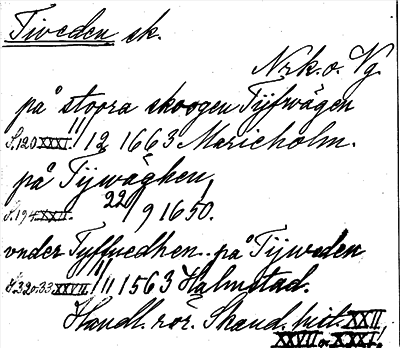 Tiveden sk.
Nrk. o. Vg.
på stoora skoogen Tijfwägen
S. 120 XXXI. 11/12 1663 Marieholm.
på Tijwäghen
S. 194 XXII. 22/9 1650.
vnder Tyffuedhen.. på Tijweden
S. 32 o. 33 XXVII. 11/11 1563 Halmstad.
Handl. rör. Skand. hist. XXII
XXVII o. XXXI.